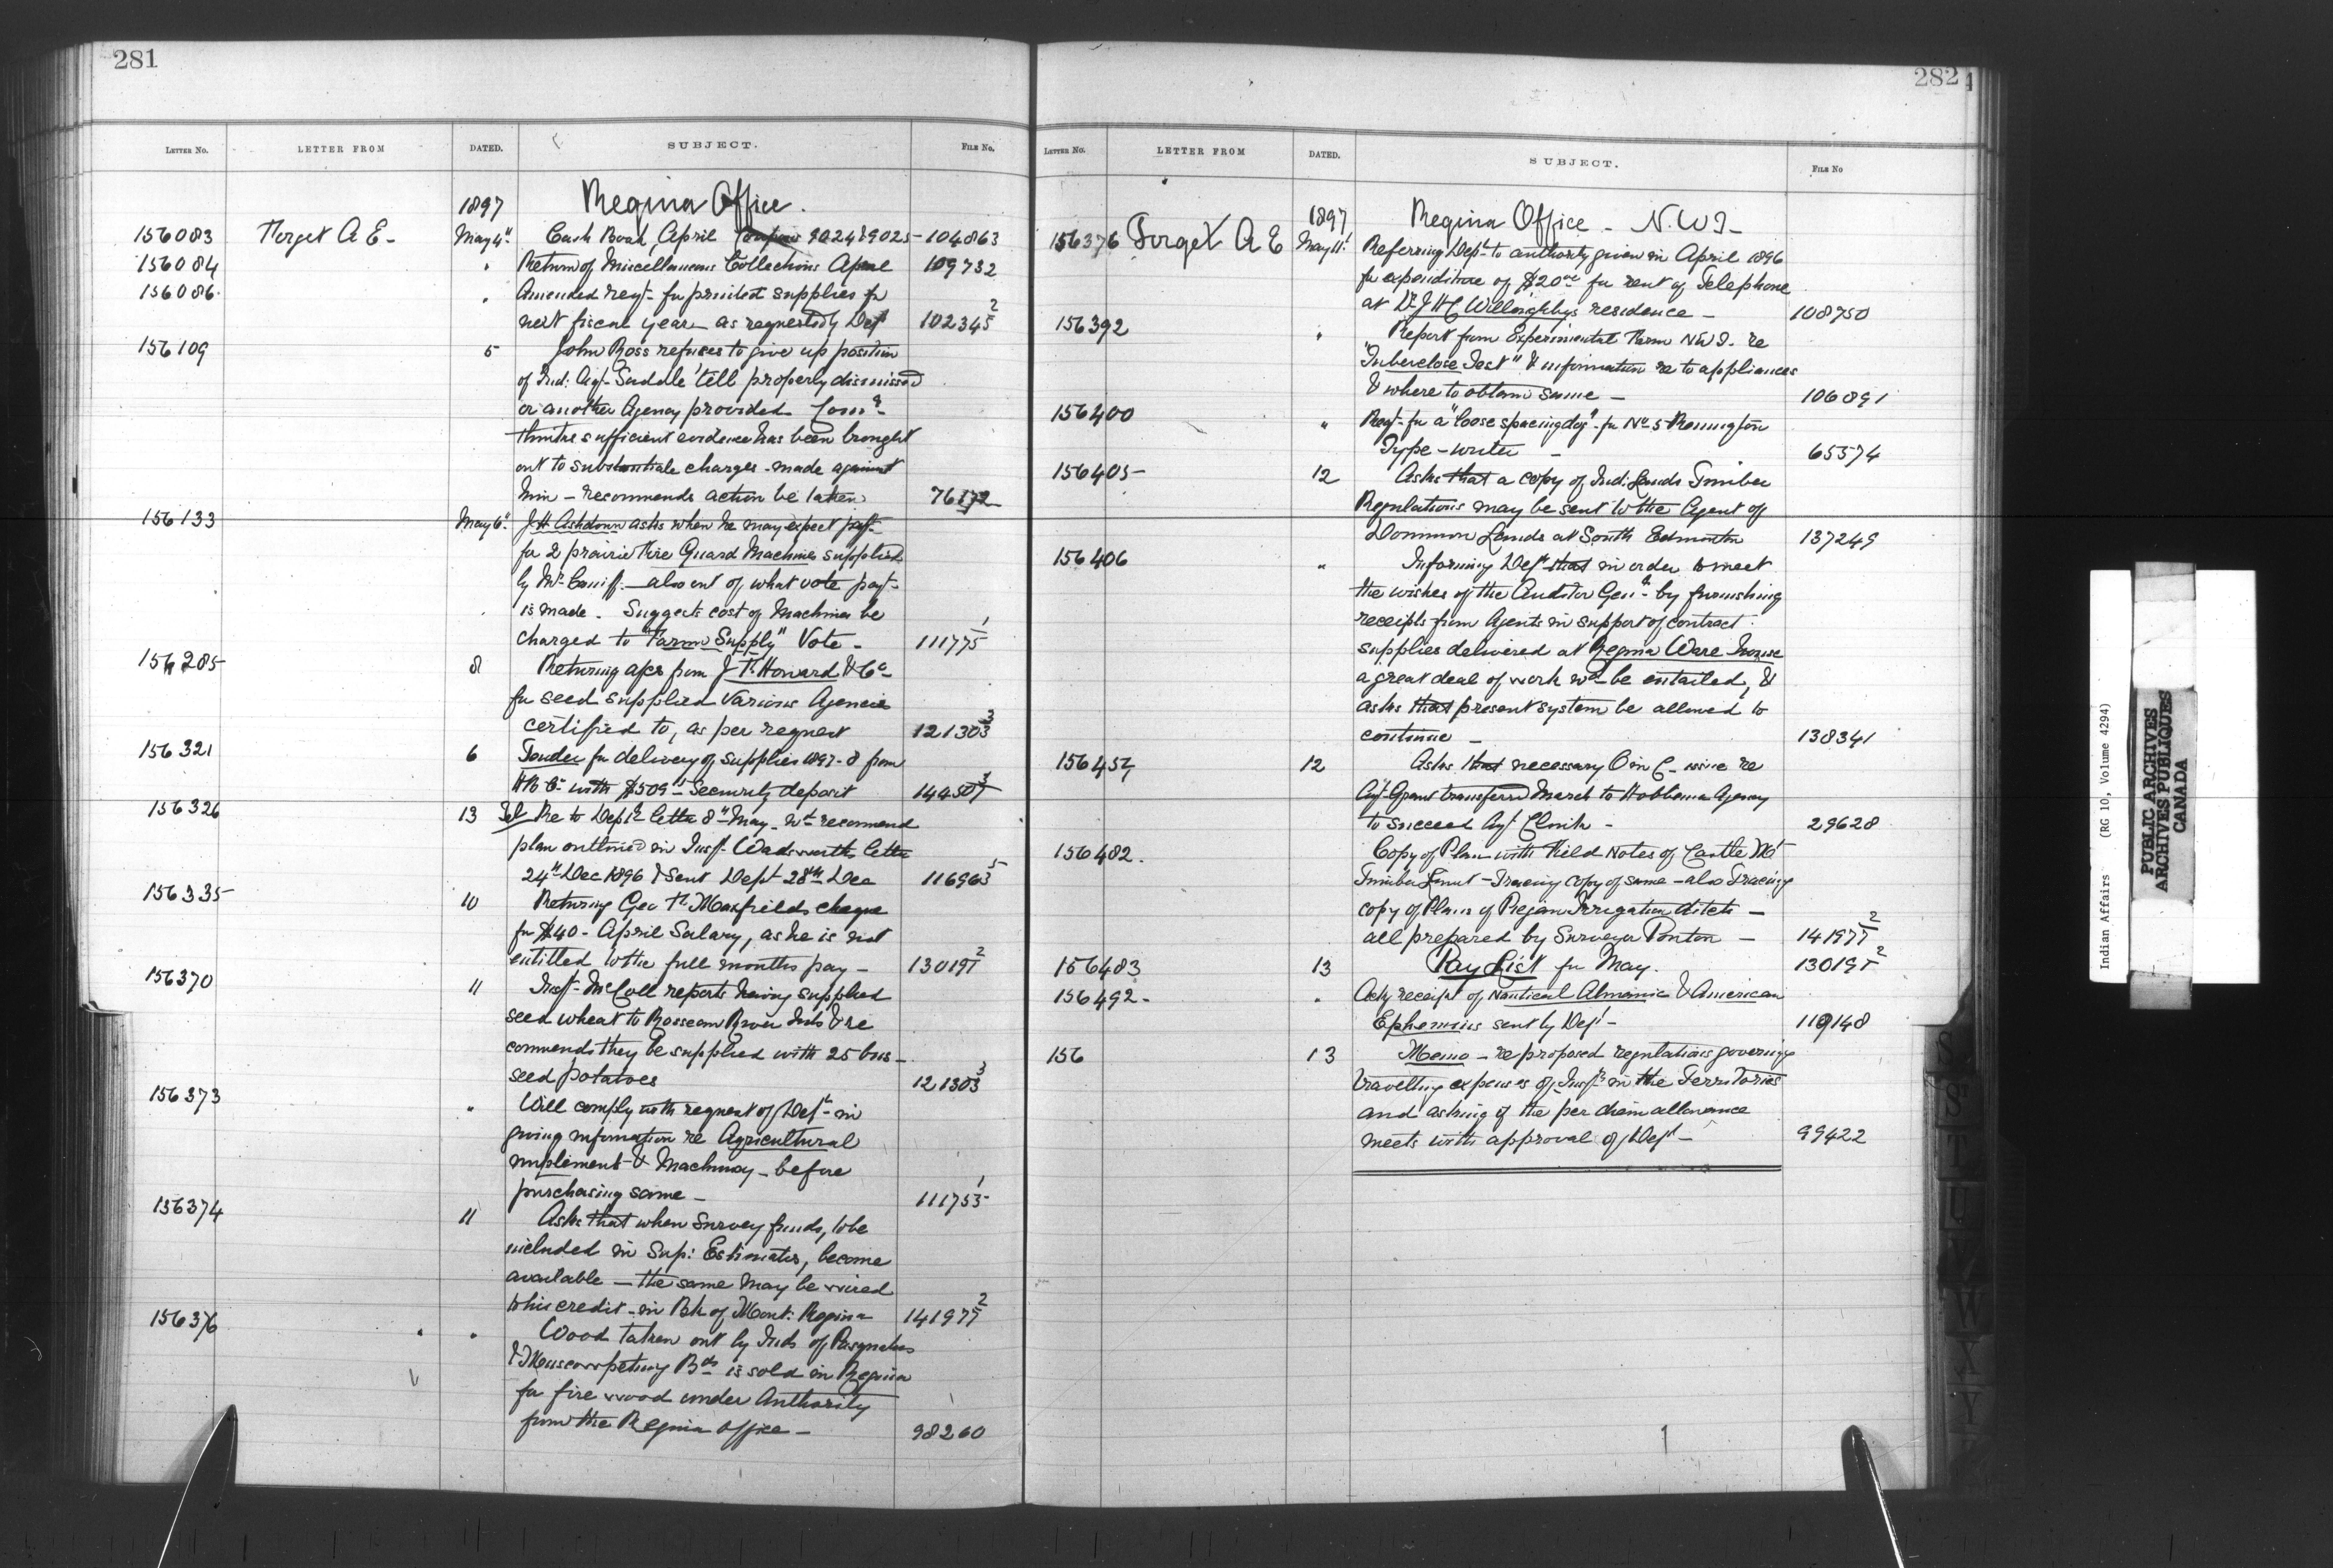 281
LETTER No. LETTER FROM DATED. SUBJECT. FILE No.
1897 Regina Office.
156083 Forget A E - May 4" Cash Book, April 9024 & 9025 - 104863
156084 " Return of Miscellaneous Collections April 109732
156086 " Amended reqt- for printed supplies for
next fiscal year as requested by Dept 102345 2
156109 5 John Ross refuses to give up position
of Ind: Agt- Savdale till properly dismissed
or another Agency provided Comr-
thinks sufficient evidence has been brought
out to substantiate charges - made against
him - recommends action be taken 76172
156133 May 6" J H Ashdown asks when he may expect payt-
for 2 prairie Fire Guard Machines supplied
by Mr Conniff - also out of what vote payt-
is made. Suggests cost of Machines be
charged to "Farm Supply" Vote - 111775 1
156285 8 Returning a/cs from J. F. Howard & Co
for seed supplied Various Agencies
certified to, as per request 121303 3
156321 6 Tender for delivery of supplies 1897-8 from
H B Co with $509 - Security deposit 144507 3
156326 13 Tel Re to Dept's letter 8" May - wd recommend
plan outlined in Insp. Wadsworth's letter
24" Dec 1896 & sent Dept 28th Dec 116963 5
156335 10 Returning Geo F. Maxfields cheque
for $40 - April Salary, as he is not
entitled to the full months pay - 130191 2
156370 11 Insp- McColl reports having supplied
seed wheat to Rosseau River Inds & re
commends they be supplied with 25 bus -
seed potatoes 121303 3
156373 " Will comply with request of Dept - in
giving information re Agricultural
implement & Machinery - before
purchasing same - 111755 1
156374 11 Asks that when Survey funds, to be
included in Sup: Estimates, become
available - the same may be wired
to his credit - in Bk of Mont: Regina 141977 2
156376 " Wood taken out by Inds of Pasquahs
& Muscowpetung Bds is sold in Regina
for fire wood under Authority
from the Regina Office - 98260
282
LETTER No. LETTER FROM DATED. SUBJECT. FILE No
1897 Regina Office - N.W.T -
156376 Forget A E May 11" Referring Dept to authority given in April 1896
for expenditure of $20.00 for rent of Telephone
at Dr J H C Willoughbys residence - 108750
156392 " Report from Experimental Farm NWT. re
"Tuberclose Test" & information re to appliances
& where to obtain same - 106891
156400 " Reqt- for a "loose spacing dog" - for No 5 Remington
Type-writer - 65574
156405 12 Asks that a copy of Ind: Lands Timber
Regulations may be sent to the Agent of
Dominion Lands at South Edmonton 137249
156406 " Informing Dept that in order to meet
the wishes of the Auditor Genl- by furnishing
receipts from Agents in support of contract
supplies delivered at Regina Ware house
a great deal of work wd be entailed, &
asks that present system be allowed to
continue - 138341
156457 12 Asks that necessary O in C - issue re
Agt- Grant transferred March to Hobbema Agency
to succeed Agt Clink - 29628
156482. Copy of Plan with Field Notes of Castle Mt
Timber Limit - Tracing copy of same - also Tracing
copy of Plans of Piegan Irrigation ditch -
all prepared by Surveyor Ponton - 141977 2
156483 13 Pay List for May. 130191 2
156492 - " Ackg receipt of Nautical Almanic & American
Ephemeris sent by Dept - 119148
156 13 Memo - re proposed regulations governing
travelling expenses of Insprs in the Territories
and asking if the per diem allowance
meets with approval of Dept - 99422
Indian Affairs (RG 10, Volume 4294)
PUBLIC ARCHIVES
ARCHIVES PUBLIQUES
CANADA
S
S
T
U
V
W
X
Y